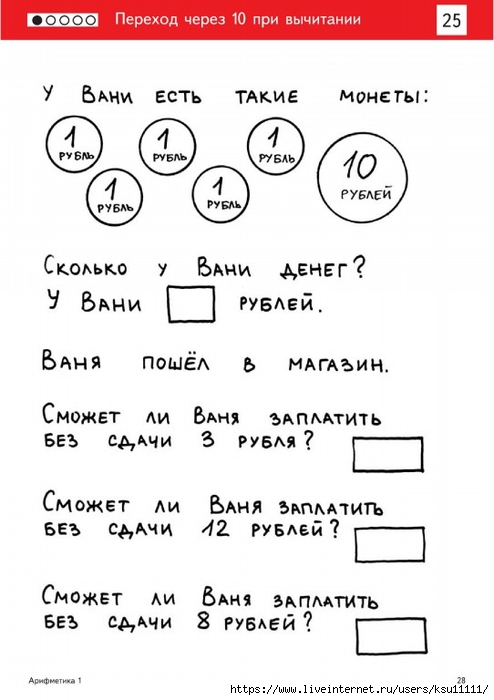 Переход через 10 при вычитании
25
У Вани есть такие монеты:
1 рубль
1 рубль
1 рубль
1 рубль
1 рубль
10 рублей
Сколько у Вани денег?
У Вани рублей.
Ваня пошёл в магазин.
Сможет ли Ваня заплатить
без сдачи 3 рубля?
Сможет ли Ваня заплатить
без сдачи 12 рублей?
Сможет ли Ваня заплатить
без сдачи 8 рублей?
Арифметика 1
28
https://www.liveinternet.ru/users/ksu11111/